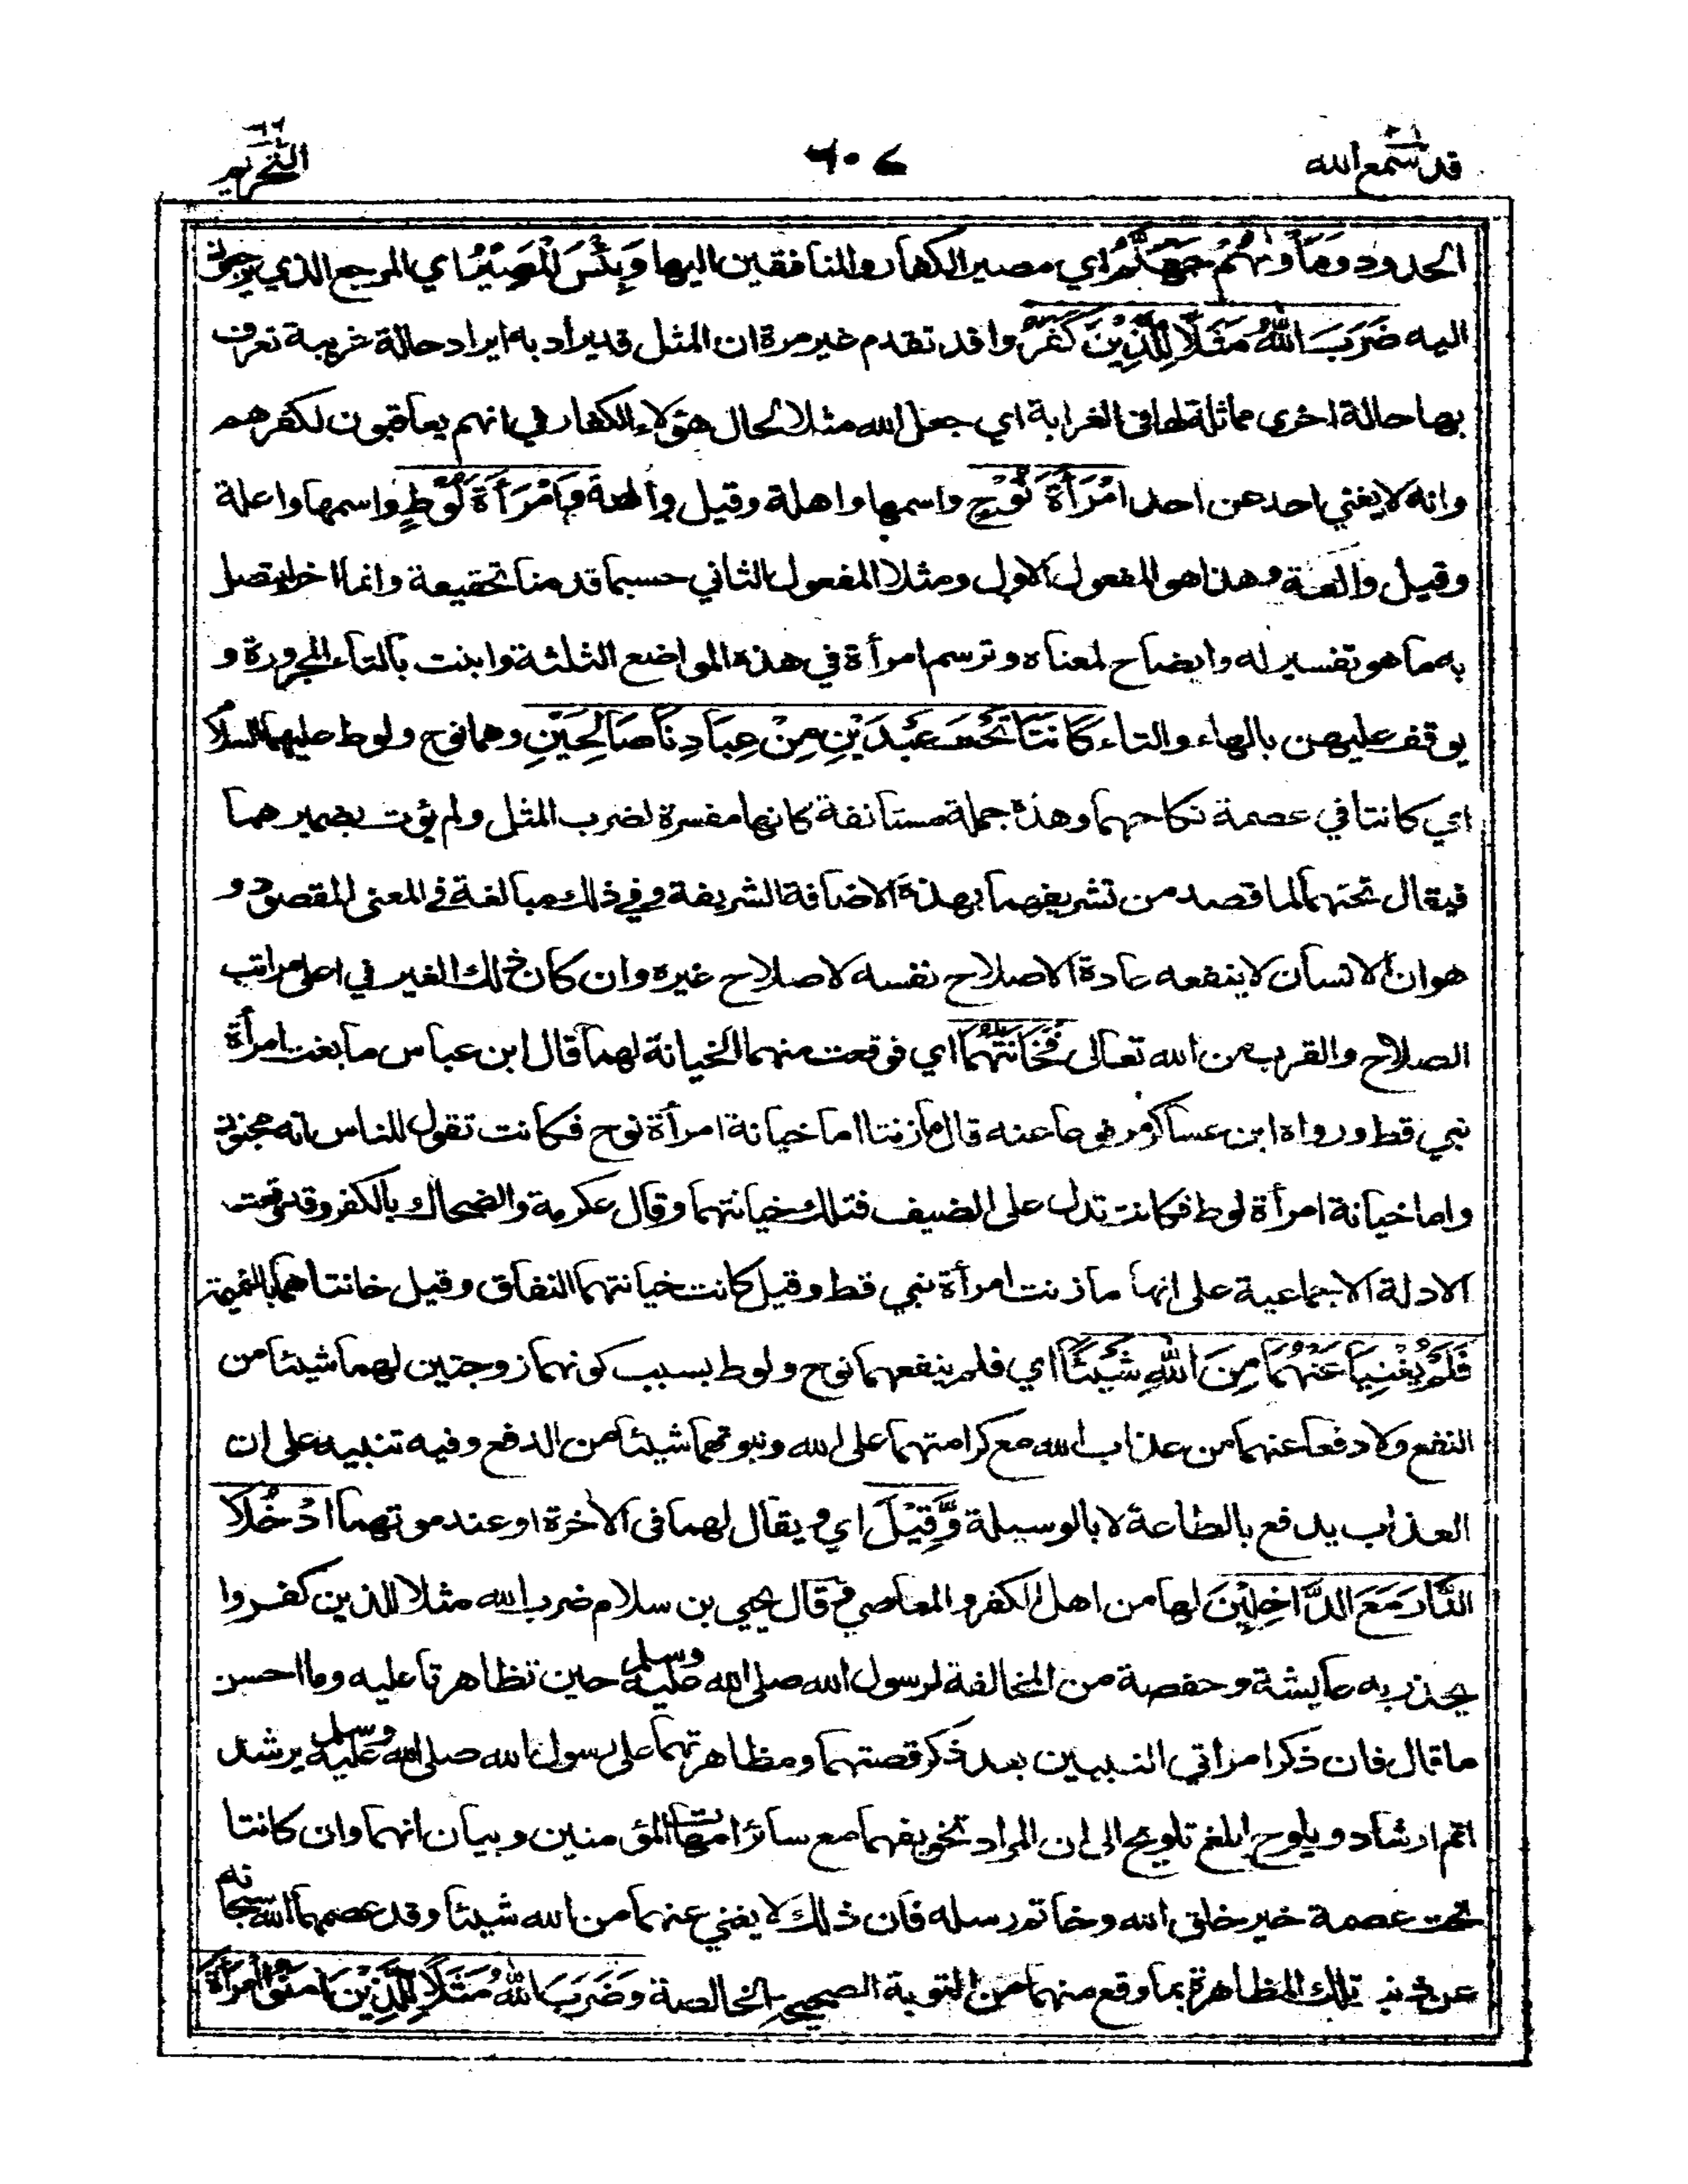 قد سمع الله ٢٨
٦٠٤
التحريم ٦٦
الحدود وَمَأْوٰىهُمْ جَهَنَّمُ اي مصير الكفار والمنافقين اليها وَبِئْسَ الْمَصِيْرُ اي المرجع الذي يرجعون
اليه ضَرَبَ اللّٰهُ مَثَلًا لِّلَّذِيْنَ كَفَرُوا قد تقدم غير مرة ان المثل قد يراد به ايراد حالة غريبة تعرف
بها حالة اخرى مماثلة لها فى الغرابة اي جعل الله مثلا لحال هؤلاء الكفار في انهم يعاقبون لكفرهم
وانه لا يغني احد عن احد امْرَأَةَ نُوْحٍ واسمها واهلة وقيل والهة وَامْرَأَةَ لُوْطٍ واسمها واعلة
وقيل والعة وهذا هو المفعول الاول ومثلا المفعول الثاني حسبما قدمنا تحقيقه وانما اخر ليتصل
به ما هو تفسير له وايضاح لمعناه وترسم امرأة في هذه المواضع الثلثة وابنت بالتاء المجرورة و
يوقف عليهن بالهاء والتاء كَانَتَا تَحْتَ عَبْدَيْنِ مِنْ عِبَادِنَا صَالِحَيْنِ وهما نوح ولوط عليهما السلام
اي كانتا في عصمة نكاحهما وهذه جملة مستانفة كانها مفسرة لضرب المثل ولم يؤت بضميرهما
فيقال تحتهما لما قصد من تشريفهما بهذه الاضافة الشريفة وفي ذلك مبالغة في المعنى المقصود و
هو ان الانسان لا ينفعه عادة الا صلاح نفسه لا صلاح غيره وان كان ذلك الغير في اعلى مراتب
الصلاح والقرب من الله تعالى فَخَانَتٰهُمَا اي فوقعت منهما الخيانة لهما قال ابن عباس ما بغت امرأة
نبي قط ورواه ابن عساكر مرفوعا عنه قال ما زنتا اما خيانة امرأة نوح فكانت تقول للناس انه مجنون
واما خيانة امرأة لوط فكانت تدل على الضيف فتلك خيانتهما وقال عكرمة والضحاك بالكفر وقد وقعت
الادلة الاجماعية على انها ما زنت امرأة نبي قط وقيل كانت خيانتهما النفاق وقيل خانتاهما بالنميمة
فَلَمْ يُغْنِيَا عَنْهُمَا مِنَ اللّٰهِ شَيْئًا اي فلم ينفعهما نوح ولوط بسبب كونهما زوجتين لهما شيئا من
النفع ولا دفعا عنهما من عذاب الله مع كرامتهما على الله ونبوتهما شيئا من الدفع وفيه تنبيه على ان
العذاب يدفع بالطاعة لا بالوسيلة وَّقِيْلَ اي ويقال لهما فى الاخرة او عند موتهما ادْخُلَا
النَّارَ مَعَ الدَّاخِلِيْنَ لها من اهل الكفر والمعاصي قال يحيى بن سلام ضرب الله مثلا للذين كفروا
يحذر به عايشة وحفصة من المخالفة لرسول الله صلى الله عليه وسلم حين تظاهرتا عليه وما احسن
ما قال فان ذكر امراتي النبيين بعد ذكر قصتهما ومظاهرتهما على رسول الله صلى الله عليه وسلم يرشد
اتم ارشاد ويلوح ابلغ تلويح الى ان المراد تخويفهما مع سائر امهات المؤمنين وبيان انهما وان كانتا
تحت عصمة خير خلق الله وخاتم رسله فان ذلك لا يغني عنهما من الله شيئا وقد عصمهما الله سبحانه
عن ذنب تلك المظاهرة بما وقع منهما من التوبة الصحيحة الخالصة وَضَرَبَ اللّٰهُ مَثَلًا لِّلَّذِيْنَ اٰمَنُوا امْرَأَةَ